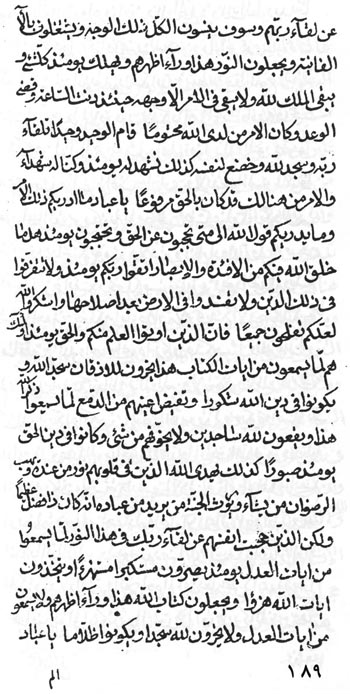 عن لقاۤء ربّهم وسوف ينسون الكلّ ذلك الوجه ويشتغلون بالآ
الفانية ويجعلون النّور هذا وراۤء اظهرهم و يهلك يومئذ كلّ شئ و
يبقى الملك لله ولا يبقى فى الدّهر الّا وجهه حينئذ دنت السّاعة و قضى
الوعد وكان الامر من لدى الله محتومًا قام الوحيد وحيدًا تلقاۤء
ربّه وسجد لله وخضع لنفسه كذلك نشهد له يومئذ وكنّا له شهداۤء
والامر من هنالك قد كان بالحقّ مرفوعًا يا عباد ربّكم ذلك
وما يدريكم قولا لله الى متى تحجبون عن الحقّ وتحتجبون يومئذ هذا ما
خلق الله فيكم من الافئدة والابصار اتّقوا ربّكم يومئذ ولا تفرّقوا
فى ذلك الدّين ولا تفسدوا فى الارض بعد اصلاحها واشكروا الله
لعلّكم تفلحون جميعًا فانّ الذّين اوتوا العلم منكم والحقّ يومئذ اولئك
هم لمّا يسمعون من ايات الكتاب هذا يخرّون للاذقان سجّدًا لله و
يكونوا فى دين الله شكورا وتفيض اعينهم من الدّمع لمّا سمعوا ذكر الله
هذا ويقعون لله ساجدين ولا يخوّفهم من شئ وكانوا فى دين الحقّ
يومئذ صبورًا كذلك يهدى الله الذّين فى قلوبهم نور من عنده ويهب
الرّضوان من يشاۤء ويؤت الجنّة من يريد من عباده انّه كان ذا فضل عظيمًا
ولكن الذّين حجبت انفسهم عن لقاۤء ربّك فى هذا النّور لمّا يسمعوا
من ايات العدل يومئذ يصرّون مستكبرا مستهزءًا ويتّخذون
ايات الله هزؤًا ويجعلون كتاب الله هذا وراۤء اظهرهم ولا يسمعون
من ايات العدل ولا يخرّون لله سجّدا ويكونوا ظلّاما يا عباد
الم
١٨٩